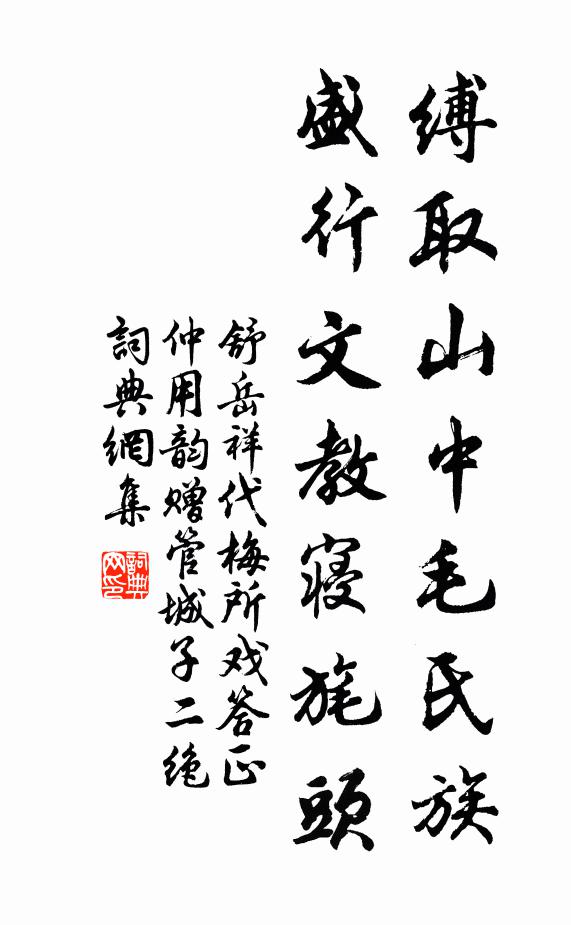 缚取山中毛氏族
盛行文教寝旄頭
舒岳祥代梅所戏答正
仲用韵赠管城子二绝
詞典網集
詞典
网印